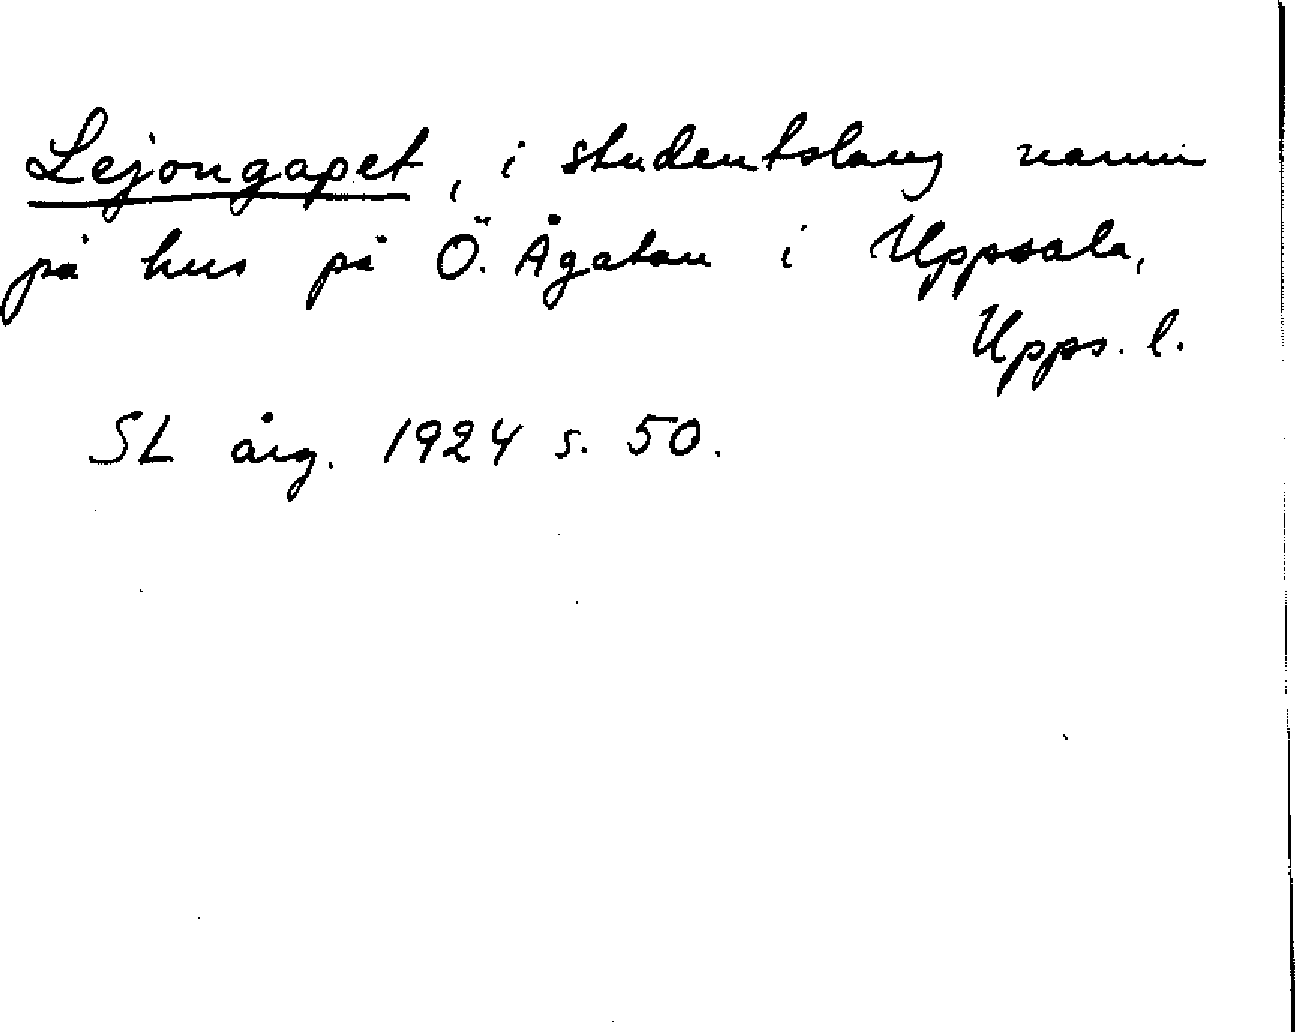 Lejongapet, i studentslang namn
på hus på Ö. Ågatan i Uppsala,
Upps. l.
SL årg. 1924 s. 50.